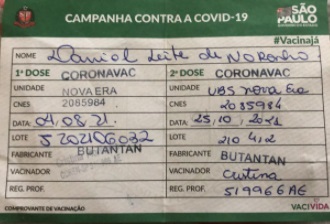 CAMPANHA CONTRA A COVID-19
SÃO PAULO
#Vacinajá
NOME Daniel Leite de Noronha
1ª DOSE CORONAVAC
UNIDADE NOVA ERA
CNES 2085984
DATA: 04.08.21
LOTE 5202106032
FABRICANTE BUTANTAN
VACINADOR
REG. PROF.
2ª DOSE CORONAVAC
UNIDADE UBS Nova Era
CNES 2085984
DATA: 25, 10, 2021
LOTE 210412
FABRICANTE BUTANTAN
VACINADOR Cristina
REG. PROF. 519966 AE
COMPROVANTE DE VACINAÇÃO
VACIVIDA